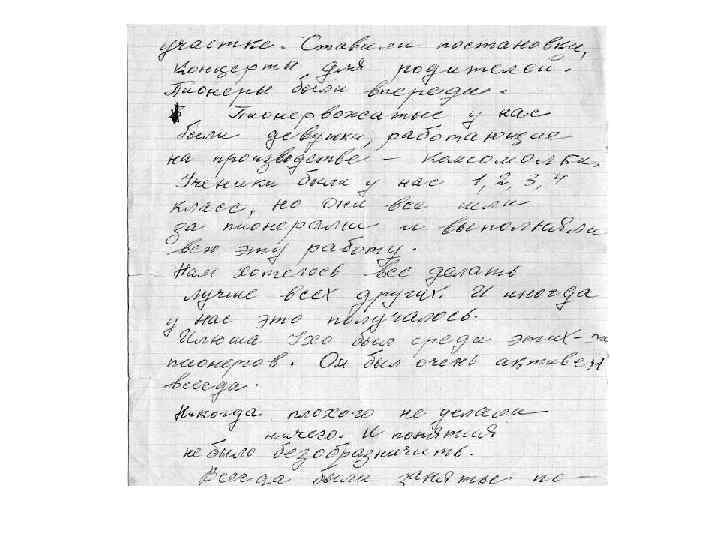 участке. Ставили постановки,
концерты для родителей.
Пионеры были впереди.
Пионервожатые у нас
были девушки, работающие
на производстве – комсомолки.
Ученики были у нас 1, 2, 3, 4
класс, но они все шли
за пионерами и выполняли
всю эту работу.
Нам хотелось все делать
лучше всех других. И иногда
у нас это получалось.
Илюша был среди этих
пионеров. Он был очень активен
всегда.
Никогда плохого не делали
ничего. И понятия
не было безобразничить.
Всегда были заняты по –